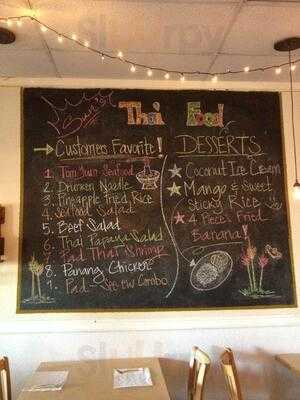 Sun's
Thai Food
Customers Favorite!
1. Tom Yum Seafood
2. Drunken Noodle
3. Pineapple Fried Rice
4. Seafood Salad
5. Beef Salad
6. Thai Papaya Salad
7. Pad Thai Shrimp
8. Panang Chicken
9. Pad - See-ew Combo
DESSERTS
Coconut Ice Cream
Mango & Sweet
Sticky Rice
4 Pieces Fried
Banana!